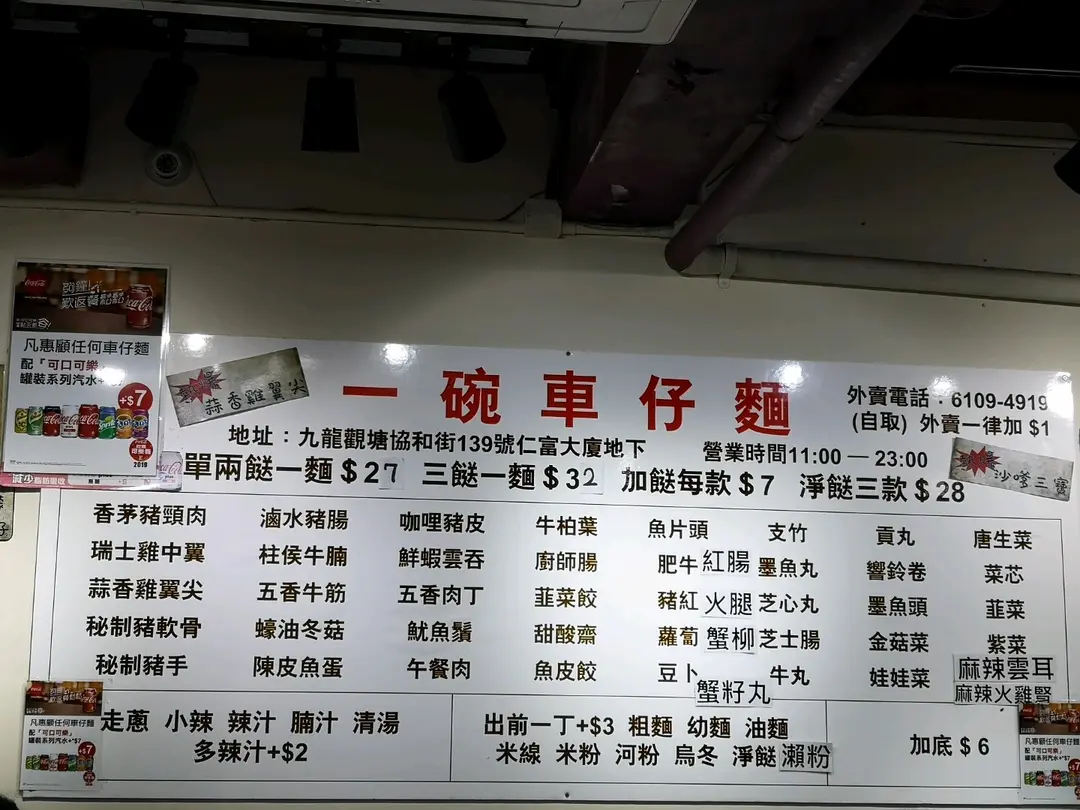 Coca-Cola
凡惠顧任何車仔麵
配「可口可樂」
罐裝系列汽水+$7
+$7
2019
蒜香雞翼尖
一碗車仔麵
外賣電話：6109-4919
(自取) 外賣一律加 $1
地址：九龍觀塘協和街139號仁富大廈地下
營業時間11:00 — 23:00
沙嗲三寶
單兩餸一麵 $27 三餸一麵 $32 加餸每款 $7 淨餸三款 $28
香茅豬頸肉 滷水豬腸 咖哩豬皮 牛柏葉 魚片頭 支竹 貢丸 唐生菜
瑞士雞中翼 柱侯牛腩 鮮蝦雲吞 廚師腸 肥牛 紅腸 墨魚丸 響鈴卷 菜芯
蒜香雞翼尖 五香牛筋 五香肉丁 韮菜餃 豬紅 火腿 芝心丸 墨魚頭 韮菜
秘制豬軟骨 蠔油冬菇 魷魚鬚 甜酸齋 蘿蔔 蟹柳 芝士腸 金菇菜 紫菜
秘制豬手 陳皮魚蛋 午餐肉 魚皮餃 豆卜 蟹籽丸 牛丸 娃娃菜 麻辣雲耳
麻辣火雞腎
走蔥 小辣 辣汁 腩汁 清湯
多辣汁+$2
出前一丁+$3 粗麵 幼麵 油麵
米線 米粉 河粉 烏冬 淨餸 瀨粉
加底 $6
凡惠顧任何車仔麵
配「可口可樂」
罐裝系列汽水+$7
+$7
凡惠顧任何車仔麵
配「可口可樂」
罐裝系列汽水+$7
+$7